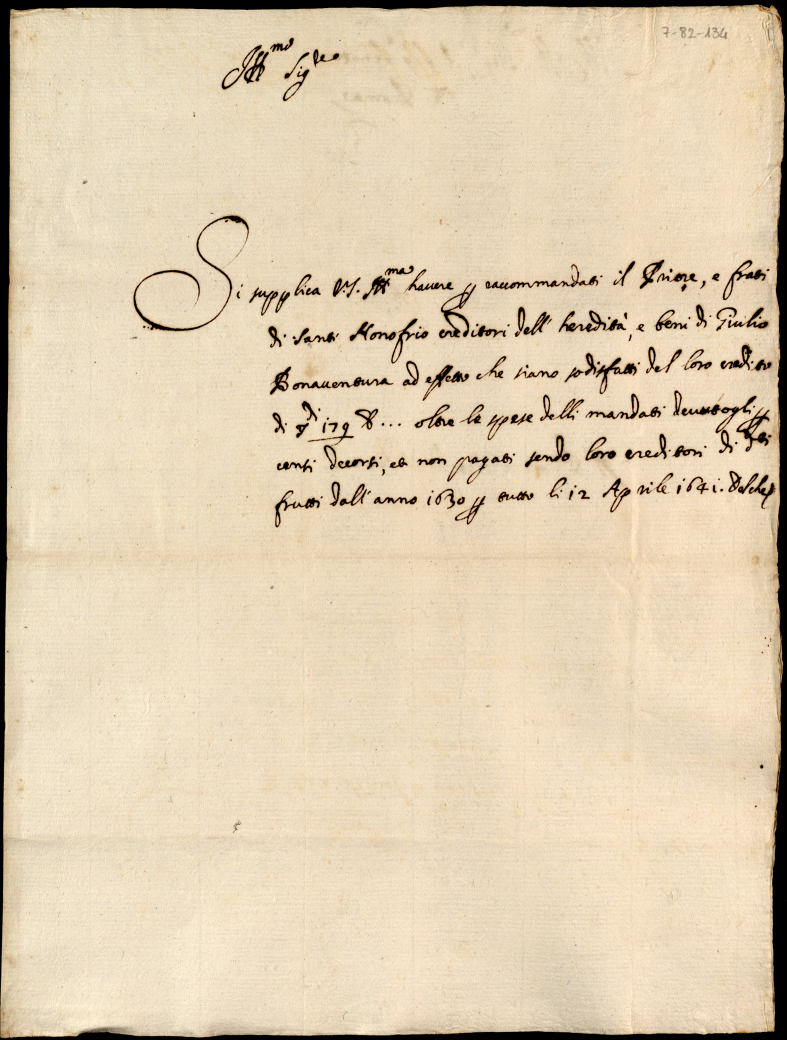 7-82-134
Ill.mo Sig.re
Si supplica V.S. Ill.ma havere p raccommandati il Priore, e frati
di Santi Honofrio creditori dell' heredità, e beni di Giulio
Bonaventura ad effetto che siano sodisfatti del loro credito
di 179 oltre le spese delli mandati p
censi decorsi, et non pagati sendo loro creditori di d.ti
frutti dall' anno 1630 p tutto li 12 Aprile 1641.